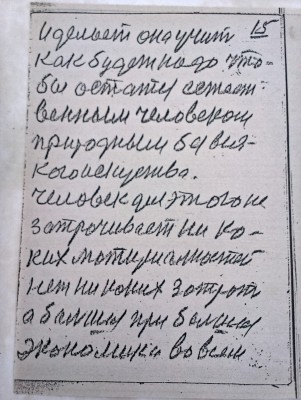 15
и делает она учит
как будет надо что-
бы остатся естест-
венным человеком
природным без вся-
кого искуства.
человек для этого не
затрачивает ни ка-
ких матерьяльностей
нет ни каких затрат
а балшая при балшая
экономика во всем